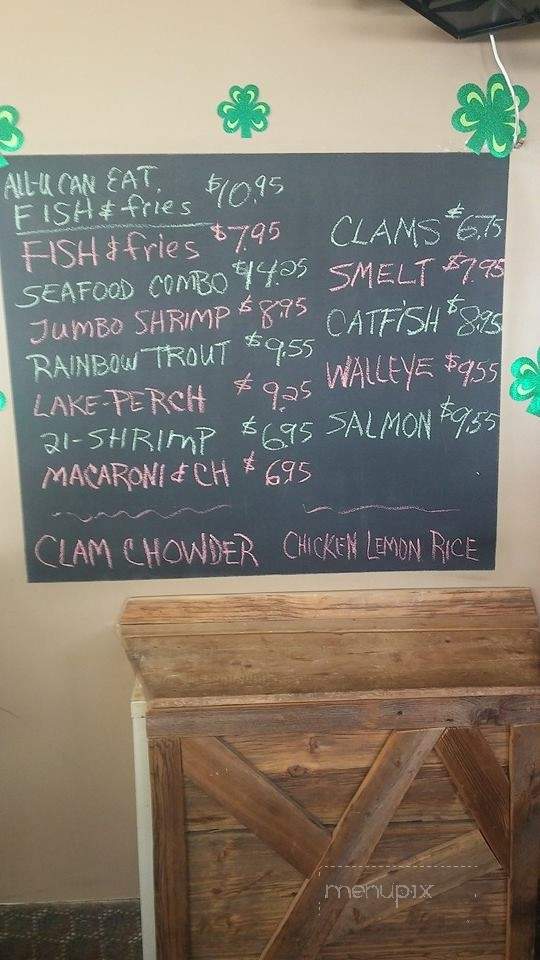 ALL-U CAN EAT. $10.95
FISH & fries
FISH & fries $7.95
SEAFOOD COMBO $14.25
JUMBO SHRIMP $8.95
RAINBOW TROUT $9.55
LAKE-PERCH $9.25
21-SHRIMP $6.95
MACARONI & CH $6.95
CLAMS $6.75
SMELT $7.95
CATFISH $8.95
WALLEYE $9.55
SALMON $9.55
CLAM CHOWDER
CHICKEN LEMON RICE
menupix